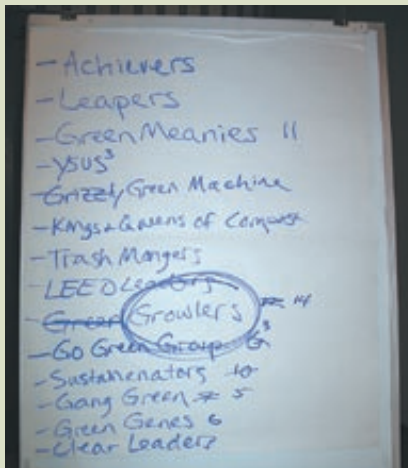 - Achievers
- Leapers
- Green Meanies 11
- YSUS³
- Grizzly Green Machine
- Kings + Queens of Compost
- Trash Mongers
- LEED Leaders
- Green Growlers 14
- Go Green Group G³
- Sustainenators 10
- Gang Green 5
- Green Genes 6
- Clear Leaders